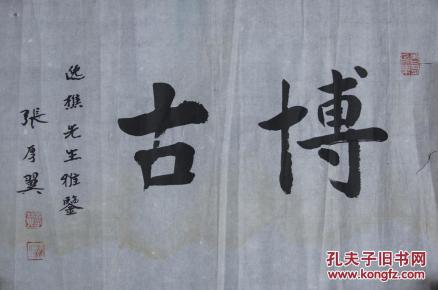 博古
逸樵先生雅鑒
張厚翼
孔夫子旧书网
www.kongfz.com